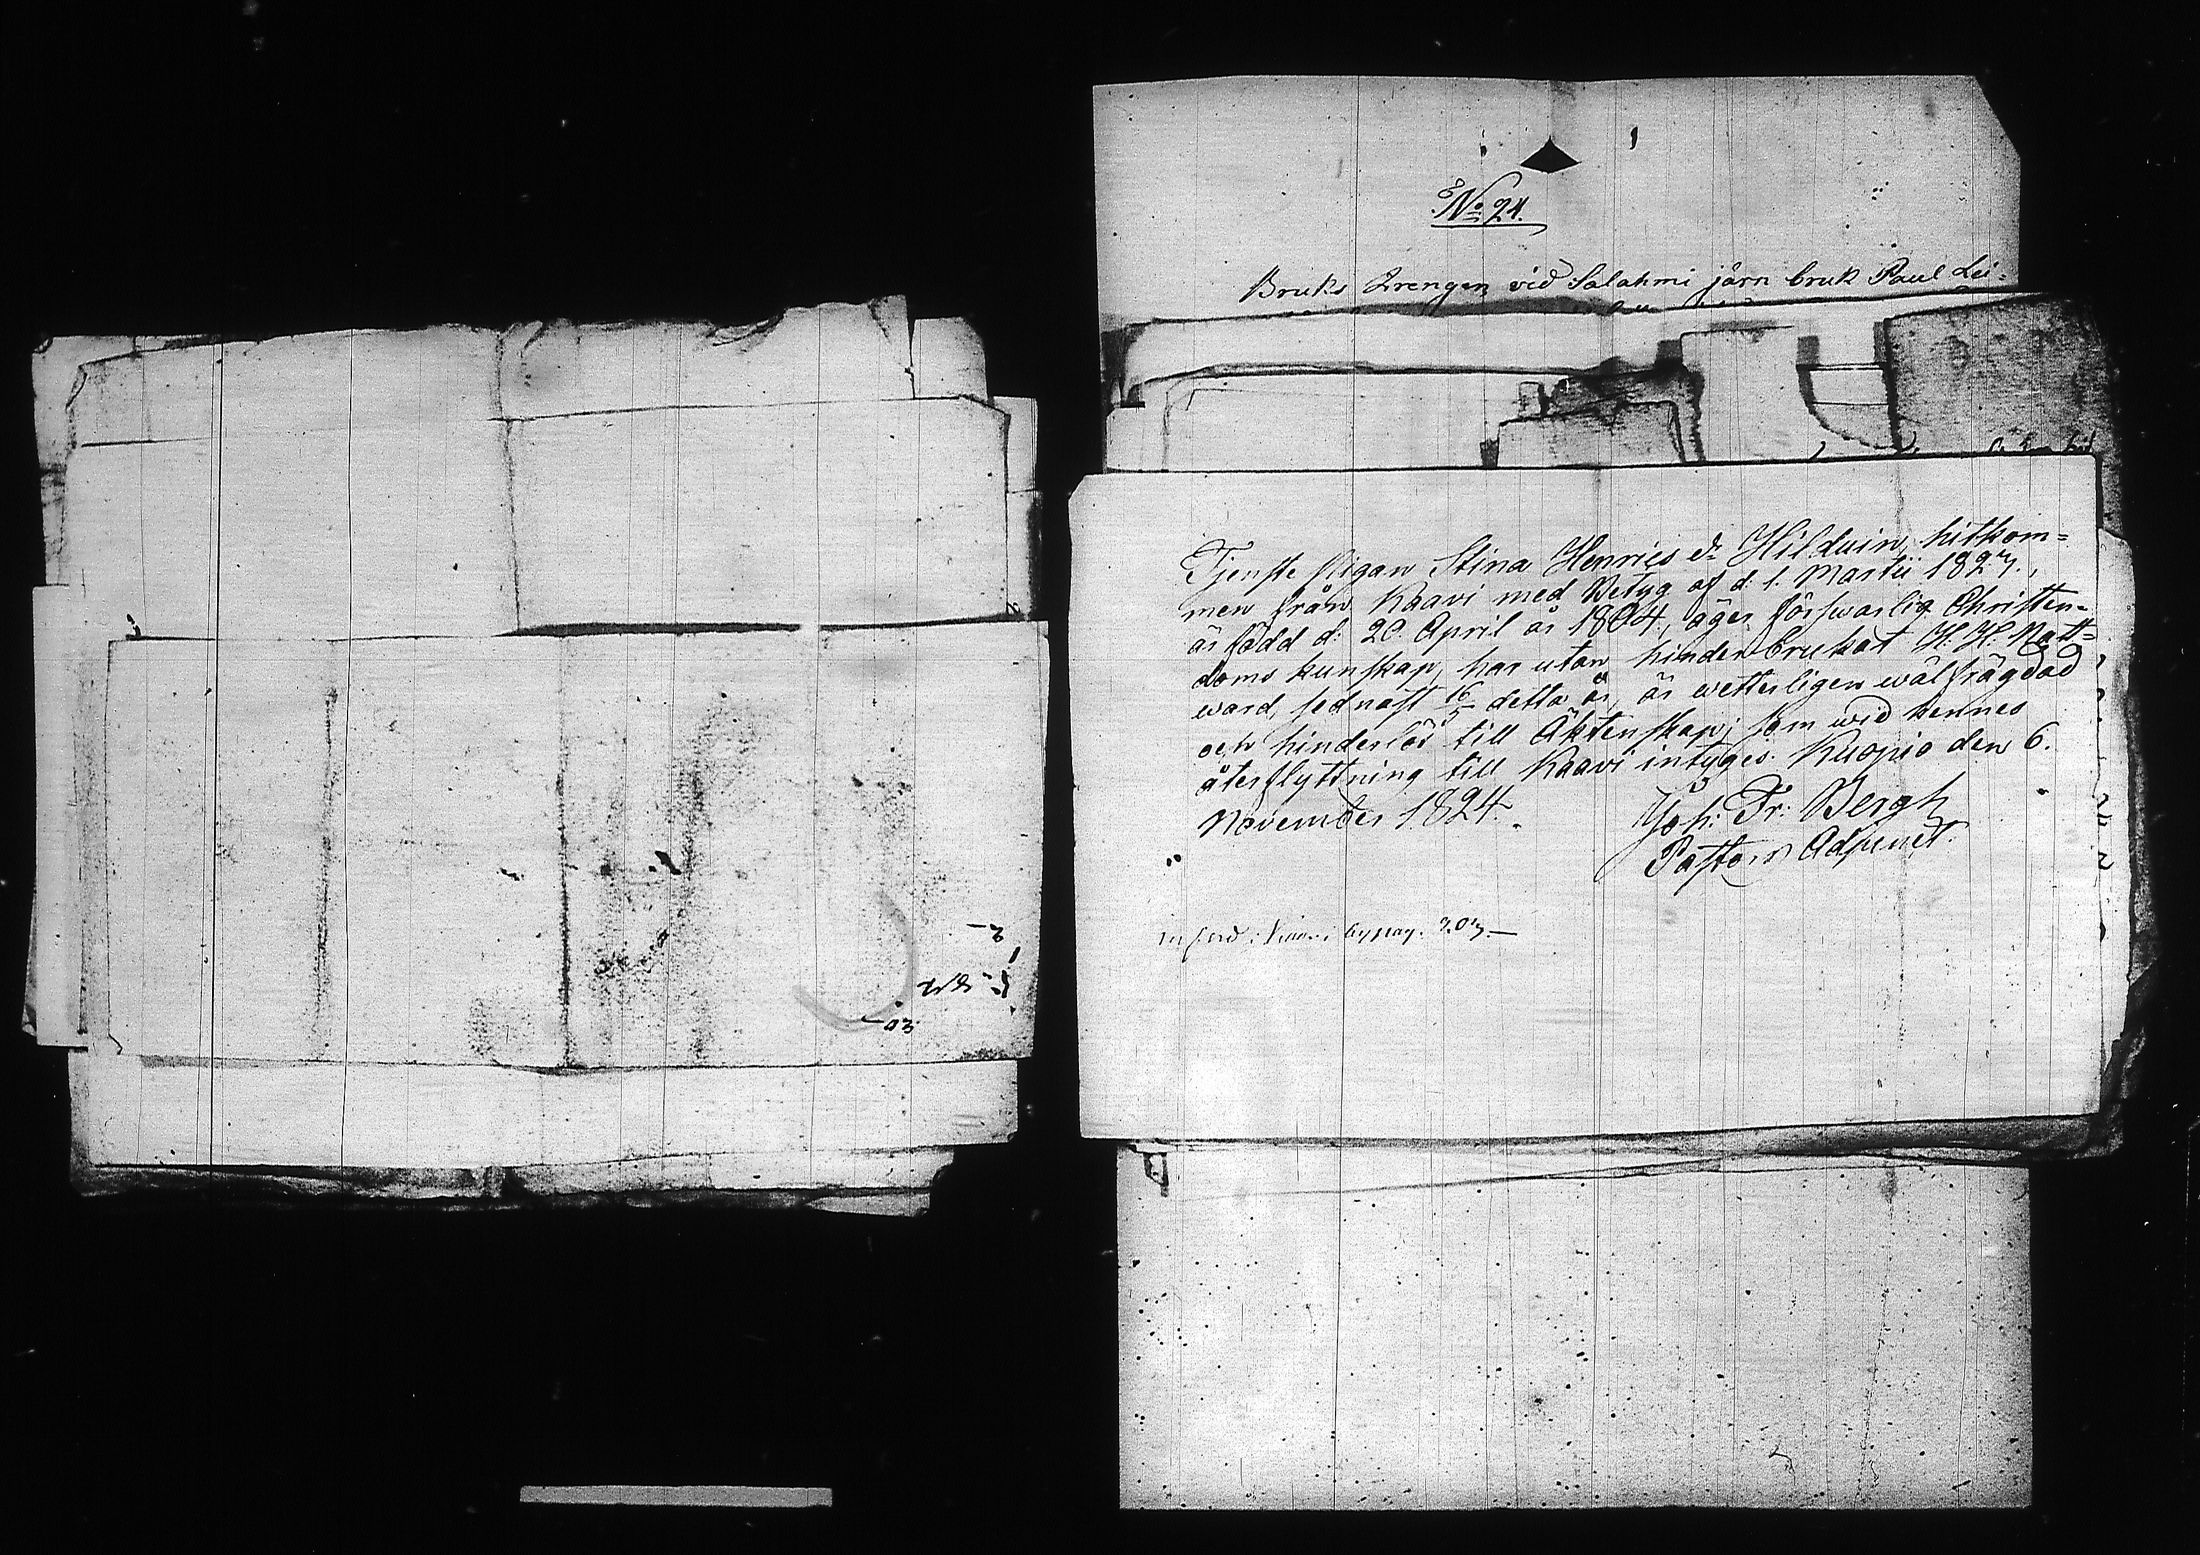 No 24.
Bruks Drengen vid Salahmi järn bruk Paul Lei=
Tjenste Pigan Stina Henrics dr Hilduin, hitkom=
men från Kaavi med Betyg af d: 1. Martii 1823.,
är född d: 20. April år 1804, äger försvarlig Christen=
doms kunskap, har utan hinder brukat H. H. Natt=
ward, sednast 16/5 detta år, är wetterligen wälfrägdad
och hinderlös till Äktenskap; som wid hennes
återflyttning till Kaavi intyges. Kuopio den 6.
November 1824.
Joh: Fr: Bergh
Pastors Adjunct.